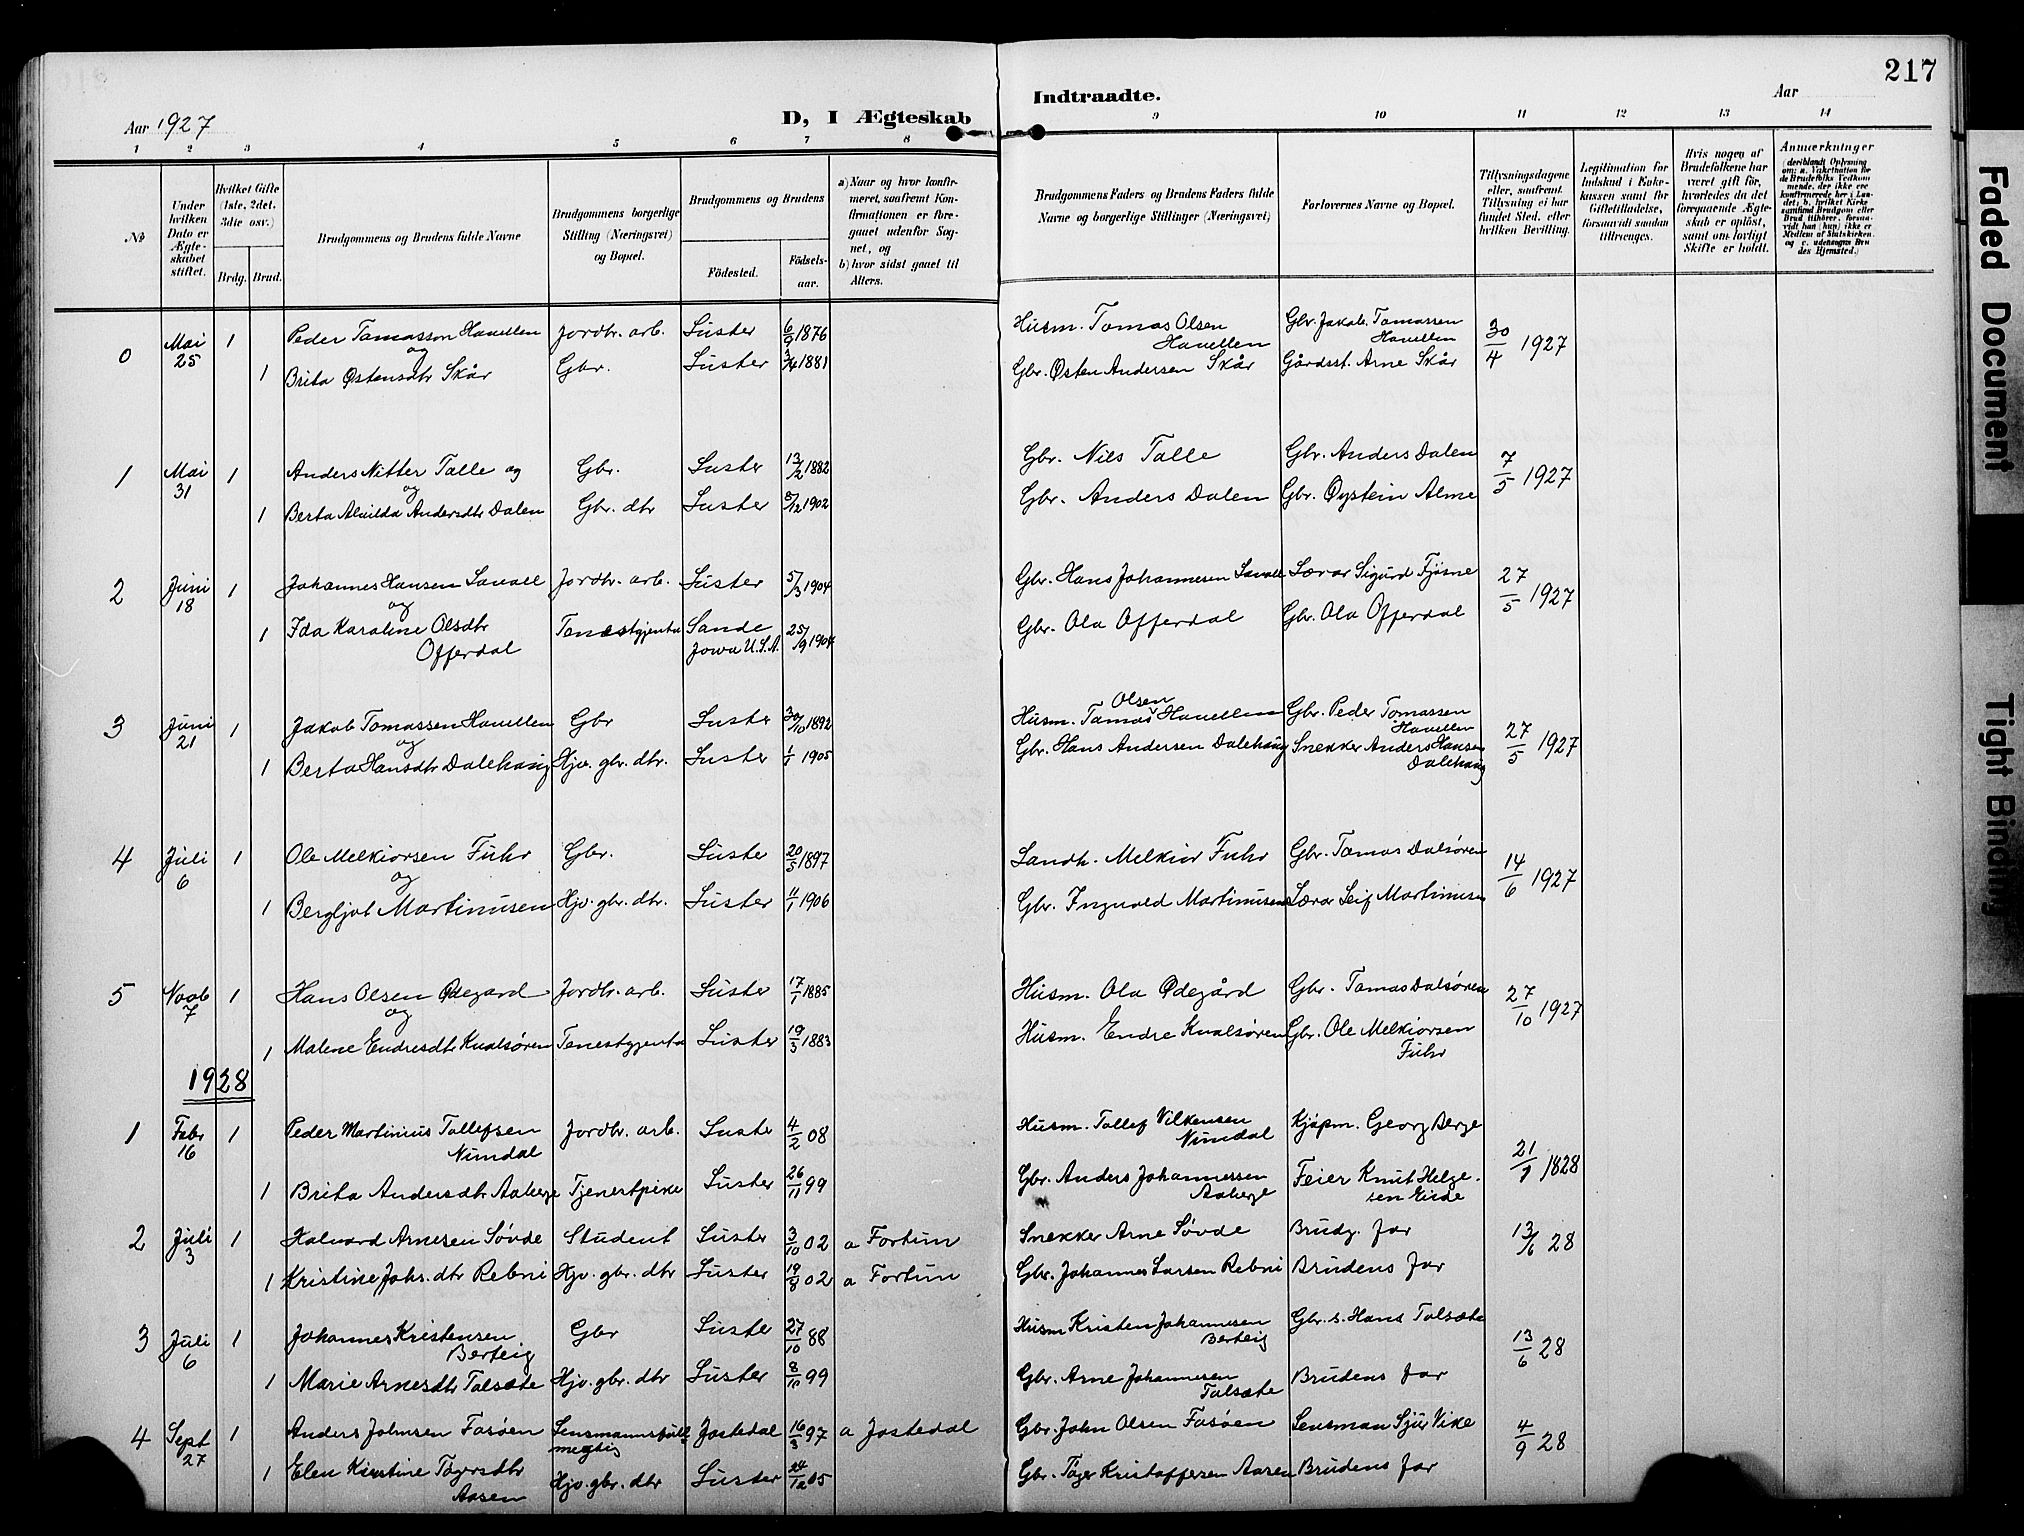 217
Aar 1927
D, I Ægteskab
Indtraadte.
Aar
1 2 3 4 5 6 7 8 9 10 11 12 13 14
No
Under hvilken Dato er Ægteskabet stiftet.
Hvilket Gifte (1ste, 2det, 3die osv.)
Brdg. Brud.
Brudgommens og Brudens fulde Navne
Brudgommens borgerlige Stilling (Næringsvei) og Bopæl.
Brudgommens og Brudens
Födested.
Födsels-aar.
a) Naar og hvor konfirmeret, saafremt Konfirmationen er foregaaet udenfor Sognet, og
b) hvor sidst gaaet til Alters.
Brudgommens Faders og Brudens Faders fulde Navne og borgerlige Stillinger (Næringsvei)
Forlovernes Navne og Bopæl.
Tillysningsdagene eller, saafremt Tillysning ei har fundet Sted, efter hvilken Bevilling.
Legitimation for Indskud i Enkekassen samt for Giftetilladelse, forsaavidt saadan tiltrænges.
Hvis nogen af Brudefolkene har været gift för, hvorledes da det foregaaende Ægteskab er oplöst, samt om lovligt Skifte er holdt.
Anmerkninger
(deriblandt Oplysning om: a. Vakcination for de Brudefolks Vedkommende, der ikke ere konfirmerede her i Landet; b. hvilket Kirkesamfund Brudgom eller Brud tilhörer, forsaavidt han (hun) ikke er Medlem af Statskirken, og c. udensogns Brudes Hjemsted.)
0 Mai 25 1 Peder Tomasson Havellen Jordbr. arb. Luster 6/9 1876 Husm. Tomas Olsen Havellen Gbr. Jakob Tomassen Havellen 30/4 1927
og
1 Brita Østensdtr Skår Gbr. Luster 3/4 1881 Gbr. Østen Andersen Skår Gårdsst. Arne Skår
1 Mai 31 1 Anders Nitter Talle og Gbr. Luster 13/2 1882 Gbr. Nils Talle Gbr. Anders Dalen 7/5 1927
og
1 Berta Alvilda Andersdtr Dalen Gbr. dtr Luster 5/12 1902 Gbr. Anders Dalen Gbr. Øystein Alme
2 Juni 18 1 Johannes Hansen Lavoll Jordbr. arb. Luster 5/3 1904 Gbr. Hans Johannesen Lavoll Lærar Sigurd Fjøsne 27/5 1927
og
1 Ida Karoline Olsdtr Offerdal Tenestgjenta Sande Jowa U.S.A. 25/9 1904 Gbr. Ola Offerdal Gbr. Ola Offerdal
3 Juni 21 1 Jakob Tomassen Havellen Gbr Luster 30/10 1892 Husm. Tomas Olsen Havellen Gbr. Peder Tomassen Havellen 27/5 1927
og
1 Berta Hansdtr Dalehaug Hjv. gbr. dtr. Luster 1/1 1905 Gbr. Hans Andersen Dalehaug Snekker Anders Hansen Dalehaug
4 Juli 6 1 Ole Melkiorsen Fuhr Gbr. Luster 20/5 1897 Landh. Melkior Fuhr Gbr. Tomas Dalsøren 14/6 1927
og
1 Bergljot Martinusen Hjv. gbr. dtr. Luster 11/1 1906 Gbr. Ingvald Martinusen Lærar Leif Martinusen
5 Novb 7 1 Hans Olsen Ødegard Jordbr. arb. Luster 17/1 1885 Husm. Ola Ødegård Gbr. Tomas Dalsøren 27/10 1927
og
1 Malene Endresdtr Kvalsøren Tenestgjenta Luster 19/3 1883 Husm. Endre Kvalsøren Gbr. Ole Melkiorsen Fuhr
1928
1 Febr 16 1 Peder Martinius Tollefsen Nundal Jordbr. arb. Luster 4/2 08 Husm. Tollef Vilkensen Nundal Kjøpm. Georg Berge 21/1 1828
1 Brita Andersdtr Aaberge Tjenestpike Luster 26/11 99 Gbr. Anders Johannessen Aaberge Feier Knut Helgesen Eide
2 Juli 3 1 Halvard Arnesen Søvde Student Luster 3/10 02 a Fortun Snekker Arne Søvde Brudg. far 13/6 28
1 Kristine Johs. dtr Rebni Hjv. gbr. dtr Luster 19/8 02 a Fortun Gbr. Johannes Larsen Rebni Brudens far
3 Juli 6 1 Johannes Kristensen Berteig Gbr Luster 27/10 88 Husm Kristen Johannesen Berteig Gbr. s. Hans Talsæte 13/6 28
1 Marie Arnesdtr Talsæte Hjv. gbr. dtr Luster 8/10 99 Gbr. Arne Johannesen Talsæte Brudens far
4 Sept 27 1 Anders Johnsen Fasøen Lensmannsfullmegtig Jostedal 16/3 97 a Jostedal Gbr. John Olsen Fasøen Lensman Sjur Vike 4/9 28
1 Elen Kirstine Tøgersdtr Aasen Hjv. gbr. dtr Luster 24/12 05 Gbr. Tøger Kristoffersen Aasen Brudens far
Faded Document
Tight Binding